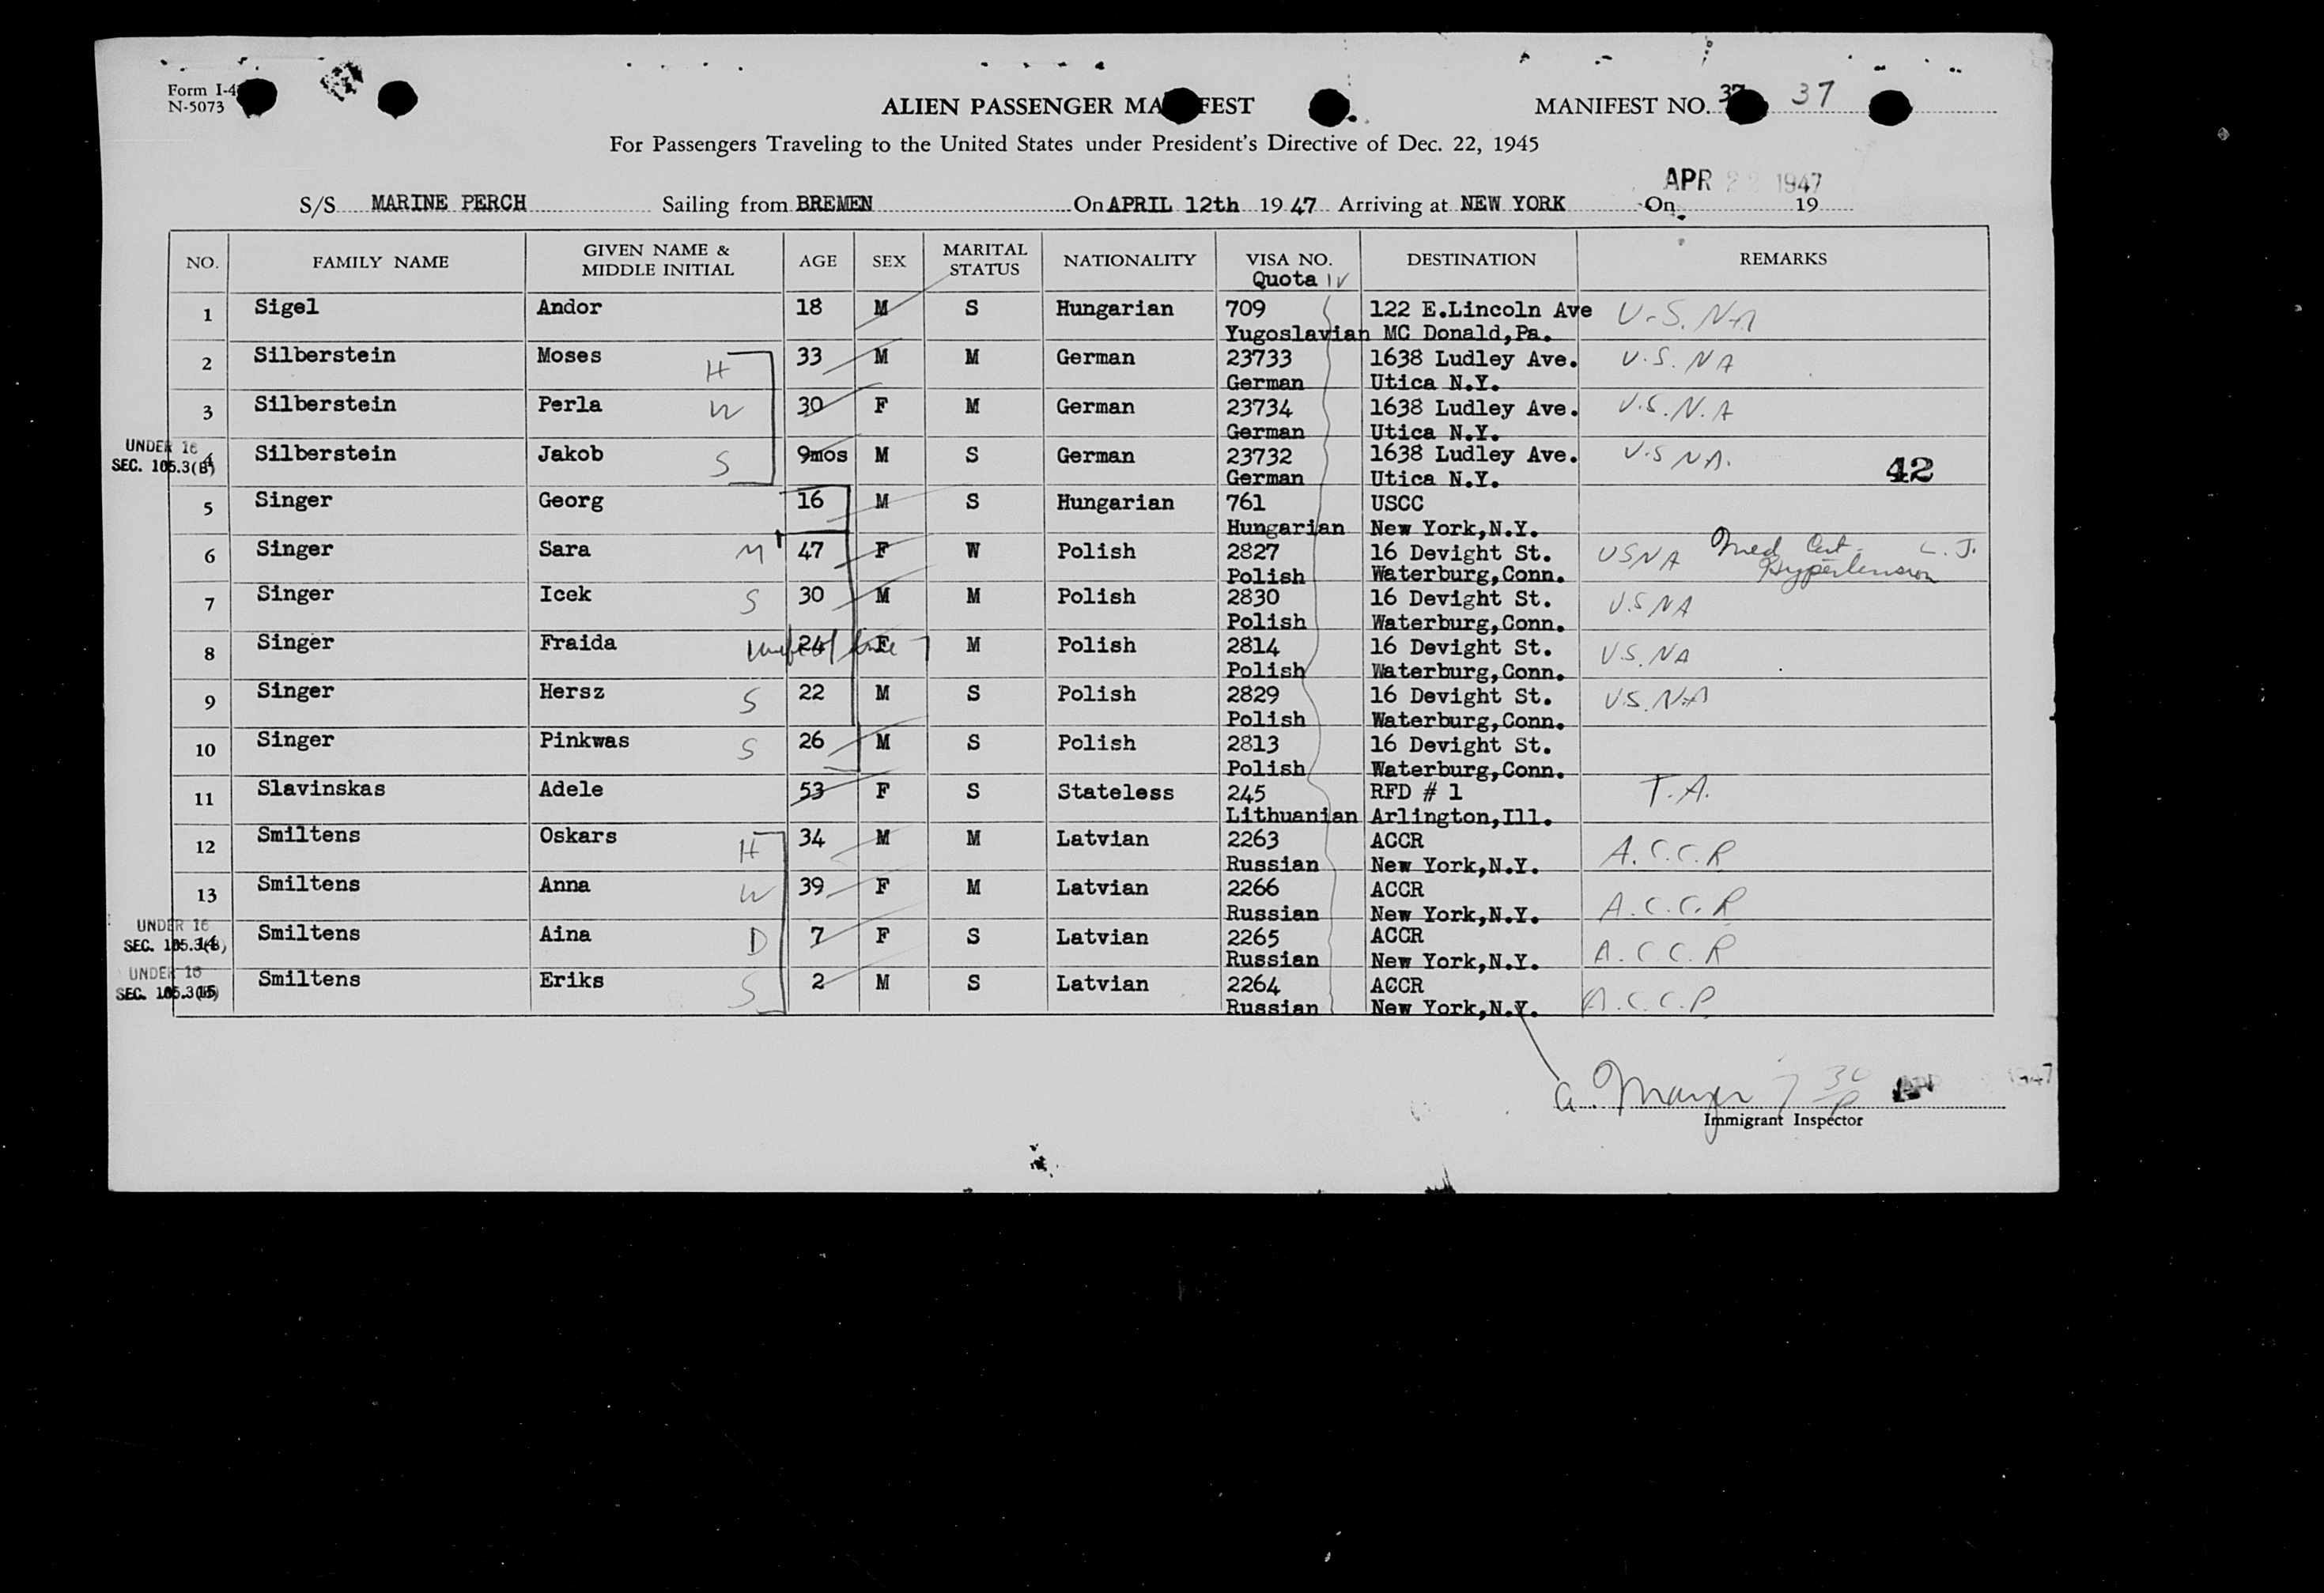 Form I-4
N-5073
ALIEN PASSENGER MA FEST
MANIFEST NO. 37 37
For Passengers Traveling to the United States under President's Directive of Dec. 22, 1945
APR 22 1947
S/S MARINE PERCH Sailing from BREMEN On APRIL 12th 19 47 Arriving at NEW YORK On 19
NO. FAMILY NAME GIVEN NAME & MIDDLE INITIAL AGE SEX MARITAL STATUS NATIONALITY VISA NO. Quota IV DESTINATION REMARKS
1 Sigel Andor 18 M S Hungarian 709 122 E.Lincoln Ave U.S.NA
Yugoslavian MC Donald,Pa.
2 Silberstein Moses H 33 M M German 23733 1638 Ludley Ave. U.S.NA
German Utica N.Y.
3 Silberstein Perla W 30 F M German 23734 1638 Ludley Ave. U.S.N.A
German Utica N.Y.
UNDER 16
SEC. 105.3(B)
4 Silberstein Jakob S 9mos M S German 23732 1638 Ludley Ave. U.S NA. 42
German Utica N.Y.
5 Singer Georg 16 M S Hungarian 761 USCC
Hungarian New York,N.Y.
6 Singer Sara M 47 F W Polish 2827 16 Devight St. USNA Med Cert. L.J.
Polish Waterburg,Conn. Hypertension
7 Singer Icek S 30 M M Polish 2830 16 Devight St. U.S NA
Polish Waterburg,Conn.
8 Singer Fraida 24 F M Polish 2814 16 Devight St. U.S.NA
Polish Waterburg,Conn.
9 Singer Hersz S 22 M S Polish 2829 16 Devight St. U.S.NA
Polish Waterburg,Conn.
10 Singer Pinkwas S 26 M S Polish 2813 16 Devight St.
Polish Waterburg,Conn.
11 Slavinskas Adele 53 F S Stateless 245 RFD # 1 T.A.
Lithuanian Arlington,Ill.
12 Smiltens Oskars H 34 M M Latvian 2263 ACCR A.C.C.R
Russian New York,N.Y.
13 Smiltens Anna W 39 F M Latvian 2266 ACCR A.C.C.R
Russian New York,N.Y.
UNDER 16
SEC. 105.3(B)
14 Smiltens Aina D 7 F S Latvian 2265 ACCR A.C.C.R
Russian New York,N.Y.
UNDER 16
SEC. 105.3(B)
15 Smiltens Eriks S 2 M S Latvian 2264 ACCR A.C.C.R
Russian New York,N.Y.
Immigrant Inspector